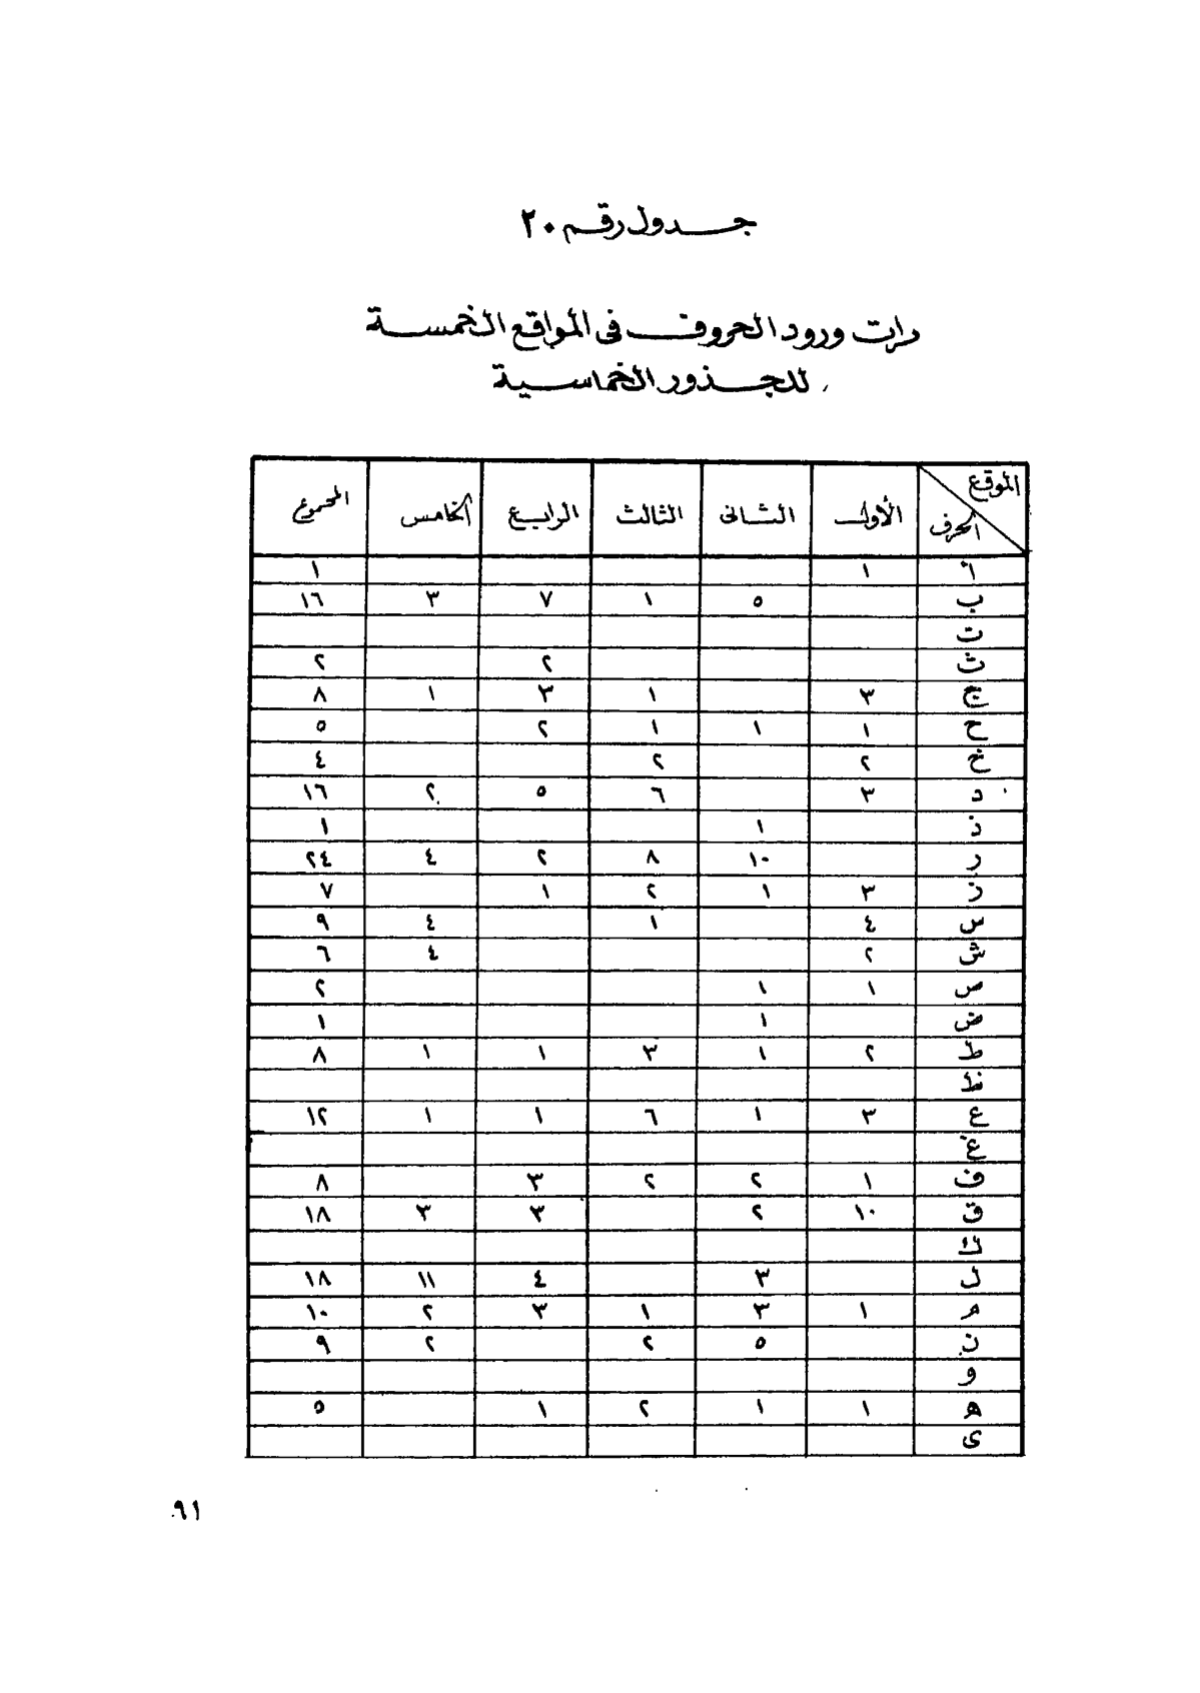 جدول رقم ٢٠
رات ورود الحروف فى المواقع الخمسة
للجذور الخماسية
الموقع الحرف الأول الثانى الثالث الرابع الخامس المجموع
أ ١ ١
ب ٥ ١ ٧ ٣ ١٦
ت
ث ٢ ٢
ج ٣ ١ ٣ ١ ٨
ح ١ ١ ١ ٢ ٥
خ ٢ ٢ ٤
د ٣ ٦ ٥ ٢ ١٦
ذ ١ ١
ر ١٠ ٨ ٢ ٤ ٢٤
ز ٣ ١ ٢ ١ ٧
س ٤ ١ ٤ ٩
ش ٢ ٤ ٦
ص ١ ١ ٢
ض ١ ١
ط ٢ ١ ٣ ١ ١ ٨
ظ
ع ٣ ١ ٦ ١ ١ ١٢
غ
ف ١ ٢ ٢ ٣ ٨
ق ١٠ ٢ ٣ ٣ ١٨
ك
ل ٣ ٤ ١١ ١٨
م ١ ٣ ١ ٣ ٢ ١٠
ن ٥ ٢ ٢ ٩
و
ه ١ ١ ٢ ١ ٥
ى
٩١